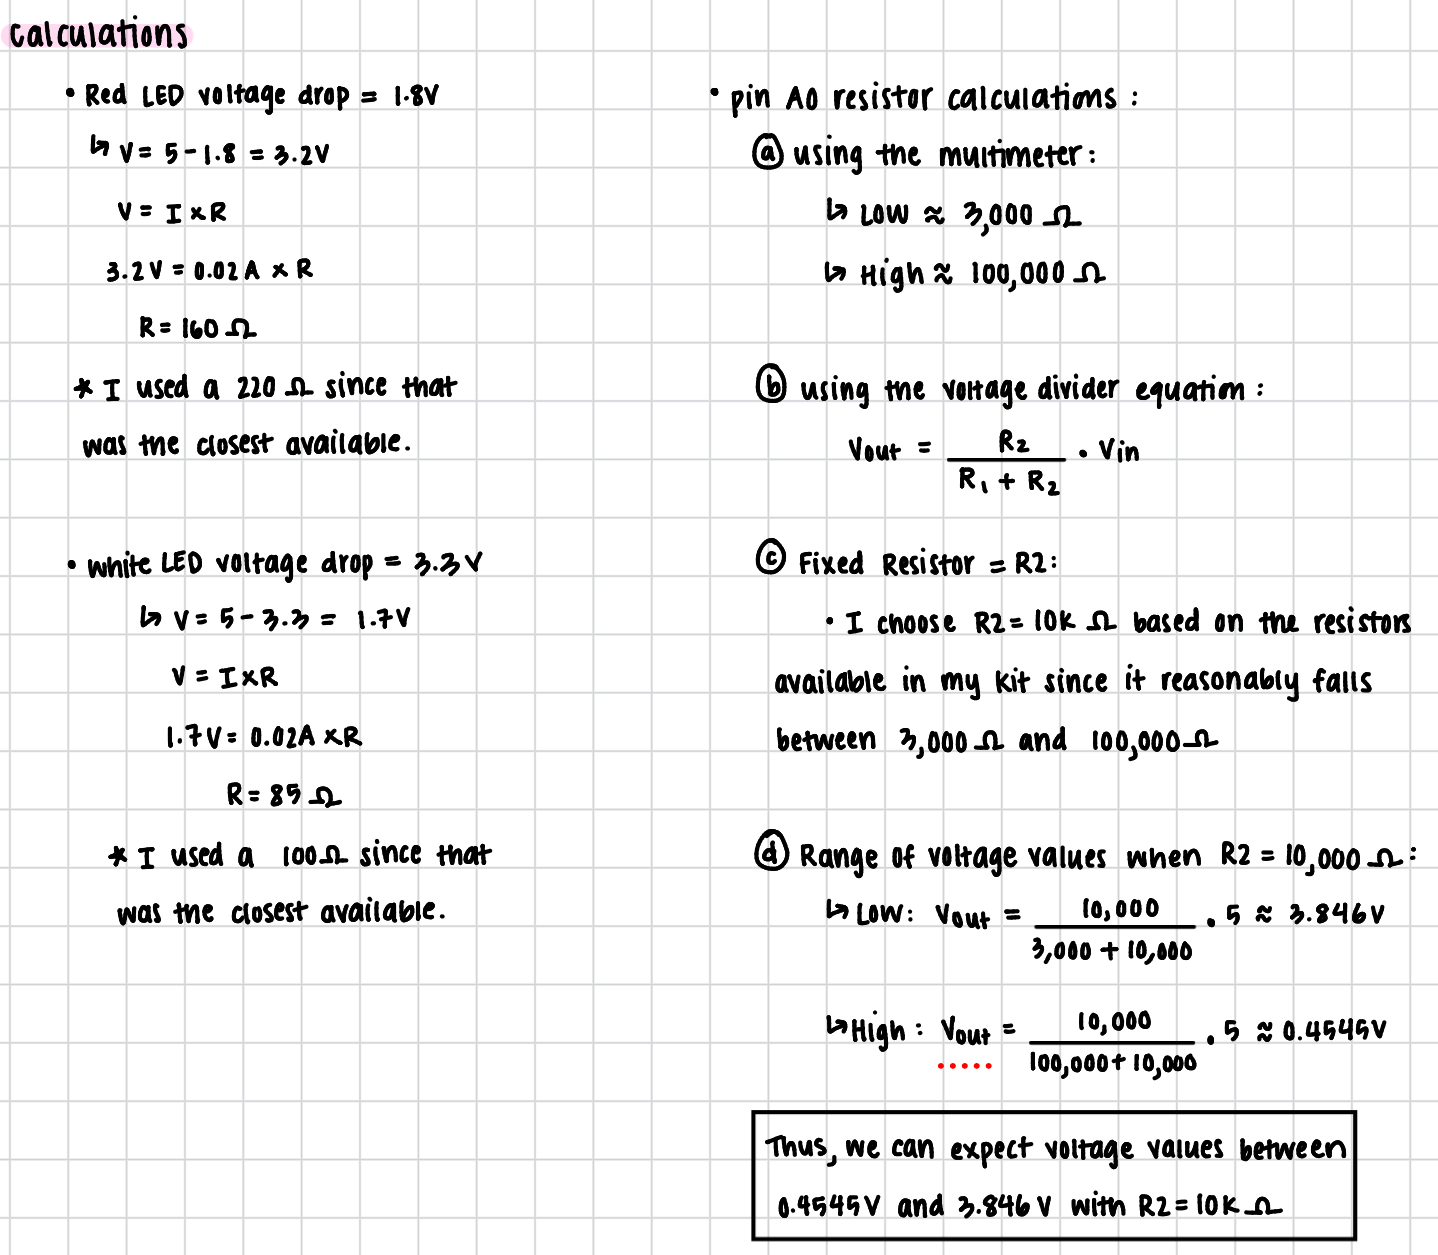 Calculations
• Red LED voltage drop = 1.8V
↳ V = 5 - 1.8 = 3.2V
V = I × R
3.2V = 0.02A × R
R = 160 Ω
* I used a 220 Ω since that
was the closest available.
• White LED voltage drop = 3.3V
↳ V = 5 - 3.3 = 1.7V
V = I × R
1.7V = 0.02A × R
R = 85 Ω
* I used a 100Ω since that
was the closest available.
• pin A0 resistor calculations :
ⓐ using the multimeter :
↳ LOW ≈ 3,000 Ω
↳ High ≈ 100,000 Ω
ⓑ using the voltage divider equation :
Vout = R2 / (R1 + R2) · Vin
ⓒ Fixed Resistor = R2:
• I choose R2 = 10K Ω based on the resistors
available in my kit since it reasonably falls
between 3,000 Ω and 100,000 Ω
ⓓ Range of voltage values when R2 = 10,000 Ω :
↳ LOW: Vout = 10,000 / (3,000 + 10,000) · 5 ≈ 3.846V
↳ High : Vout = 10,000 / (100,000 + 10,000) · 5 ≈ 0.4545V
Thus, we can expect voltage values between
0.4545V and 3.846V with R2 = 10K Ω